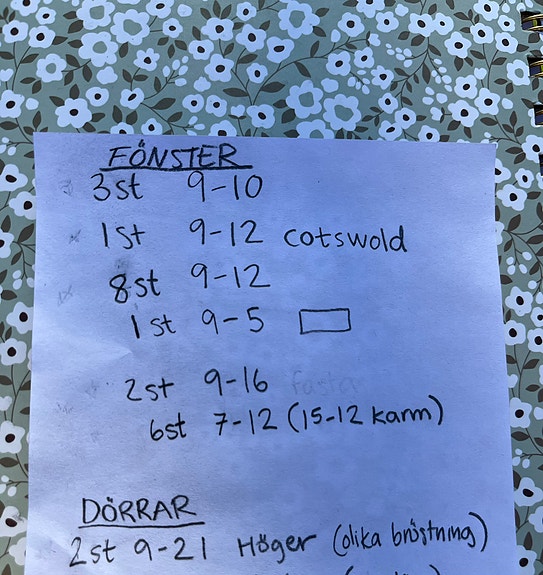 FÖNSTER
3st 9-10
1st 9-12 cotswold
8st 9-12
1st 9-5
2st 9-16 faster
6st 7-12 (15-12 karm)
DÖRRAR
2st 9-21 Höger (olika bröstning)